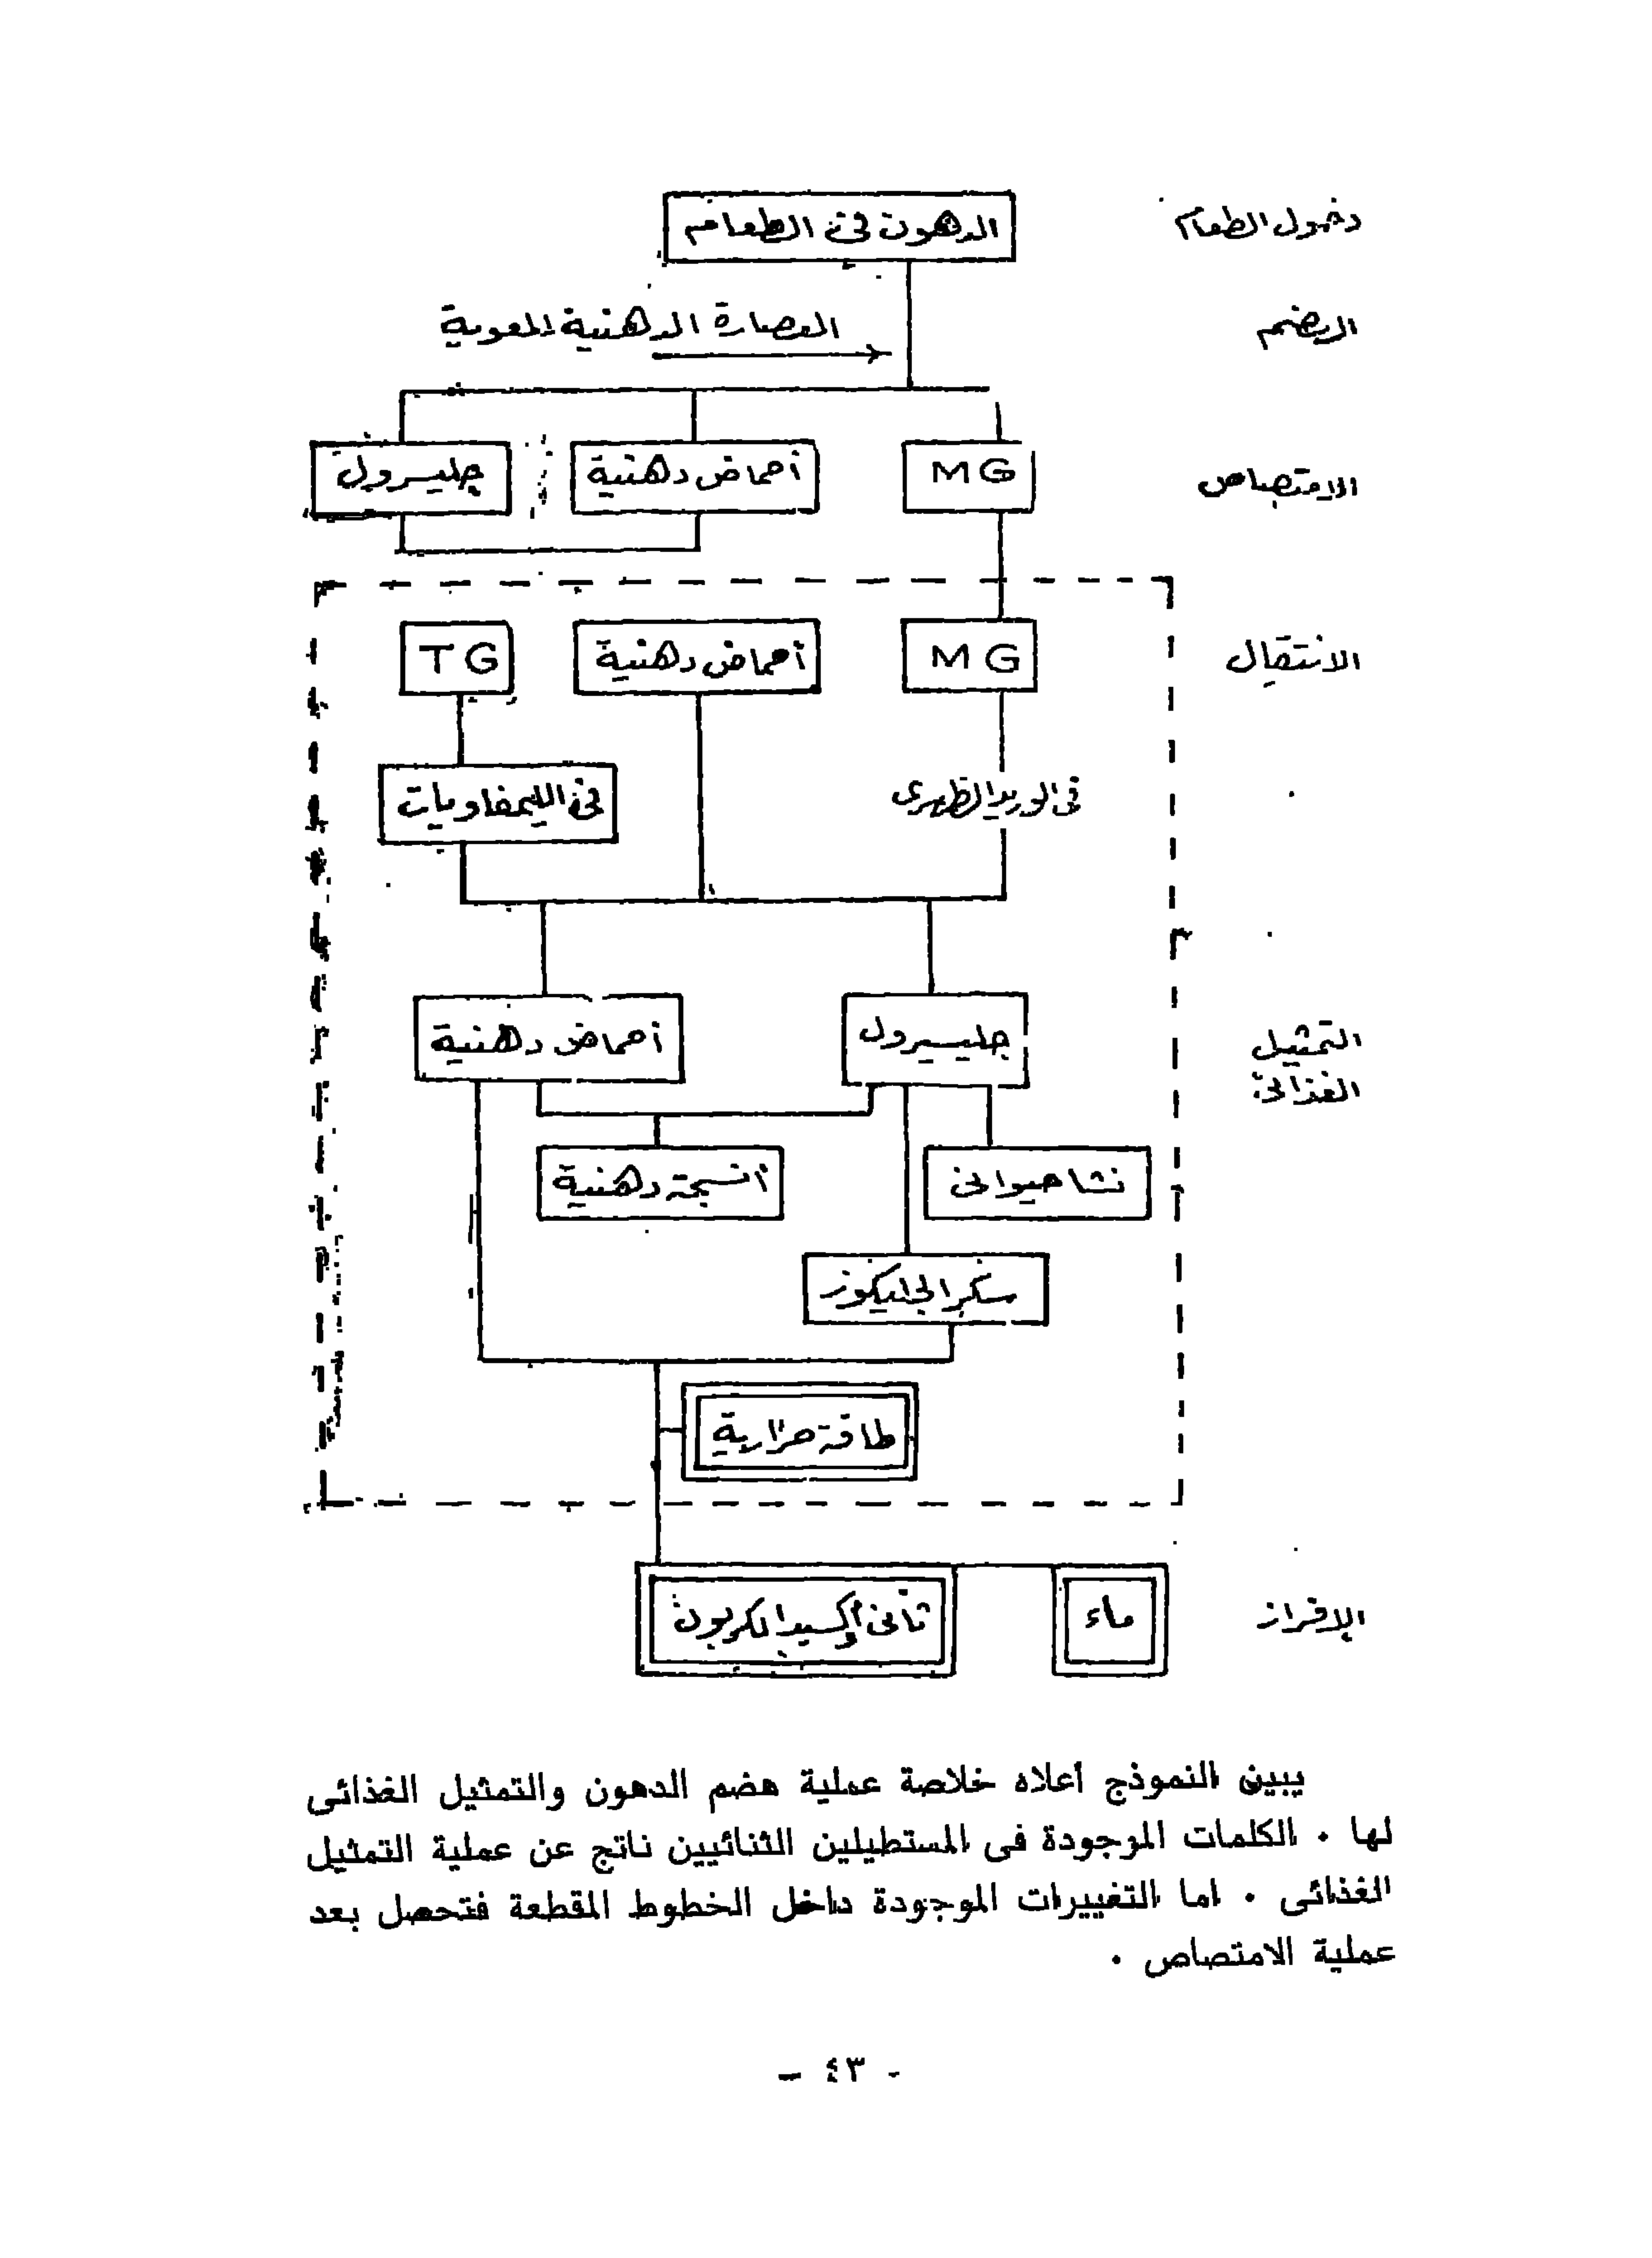 دخول الطعام
الدهون في الطعام
الهضم
العصارة الدهنية المعوية
الامتصاص
MG
أحماض دهنية
جليسرول
الانتقال
MG
أحماض دهنية
TG
في الوريد الظهرى
في الليمفاويات
التمثيل
الغذائى
جليسيرول
أحماض دهنية
نشا حيوانى
أنسجة دهنية
سكر الجليكوز
طاقة حرارية
الإفراز
ماء
ثانى أكسيد الكربون
يبين النموذج أعلاه خلاصة عملية هضم الدهون والتمثيل الغذائى
لها . الكلمات الموجودة فى المستطيلين الثنائيين ناتج عن عملية التمثيل
الغذائى . اما التغييرات الموجودة داخل الخطوط المقطعة فتحصل بعد
عملية الامتصاص .
- ٤٣ -